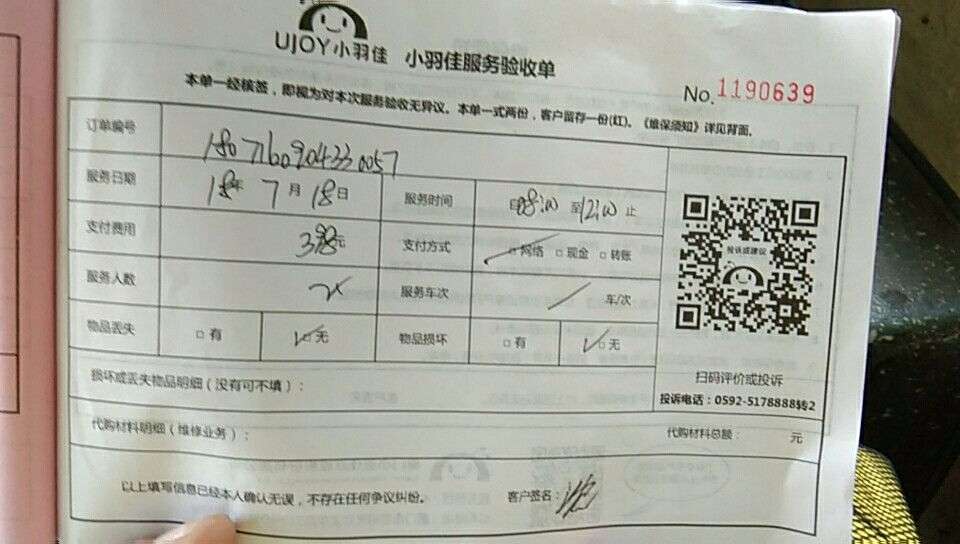 UJOY小羽佳 小羽佳服务验收单
No.1190639
本单一经核签，即视为对本次服务验收无异议。本单一式两份，客户留存一份(红)。《维保须知》详见背面。
订单编号 1807160904330057
服务日期 18年 7月 18日 服务时间 08:00 至 12:00 止
支付费用 398元 支付方式 □网络 □现金 □转账
服务人数 2人 服务车次 / 车/次
物品丢失 □有 □无 物品损坏 □有 □无
投诉或建议
扫码评价或投诉
投诉电话：0592-5178888转2
损坏或丢失物品明细（没有可不填）：
代购材料明细（维修业务）： 代购材料总额： 元
以上填写信息已经本人确认无误，不存在任何争议纠纷。 客户签名：